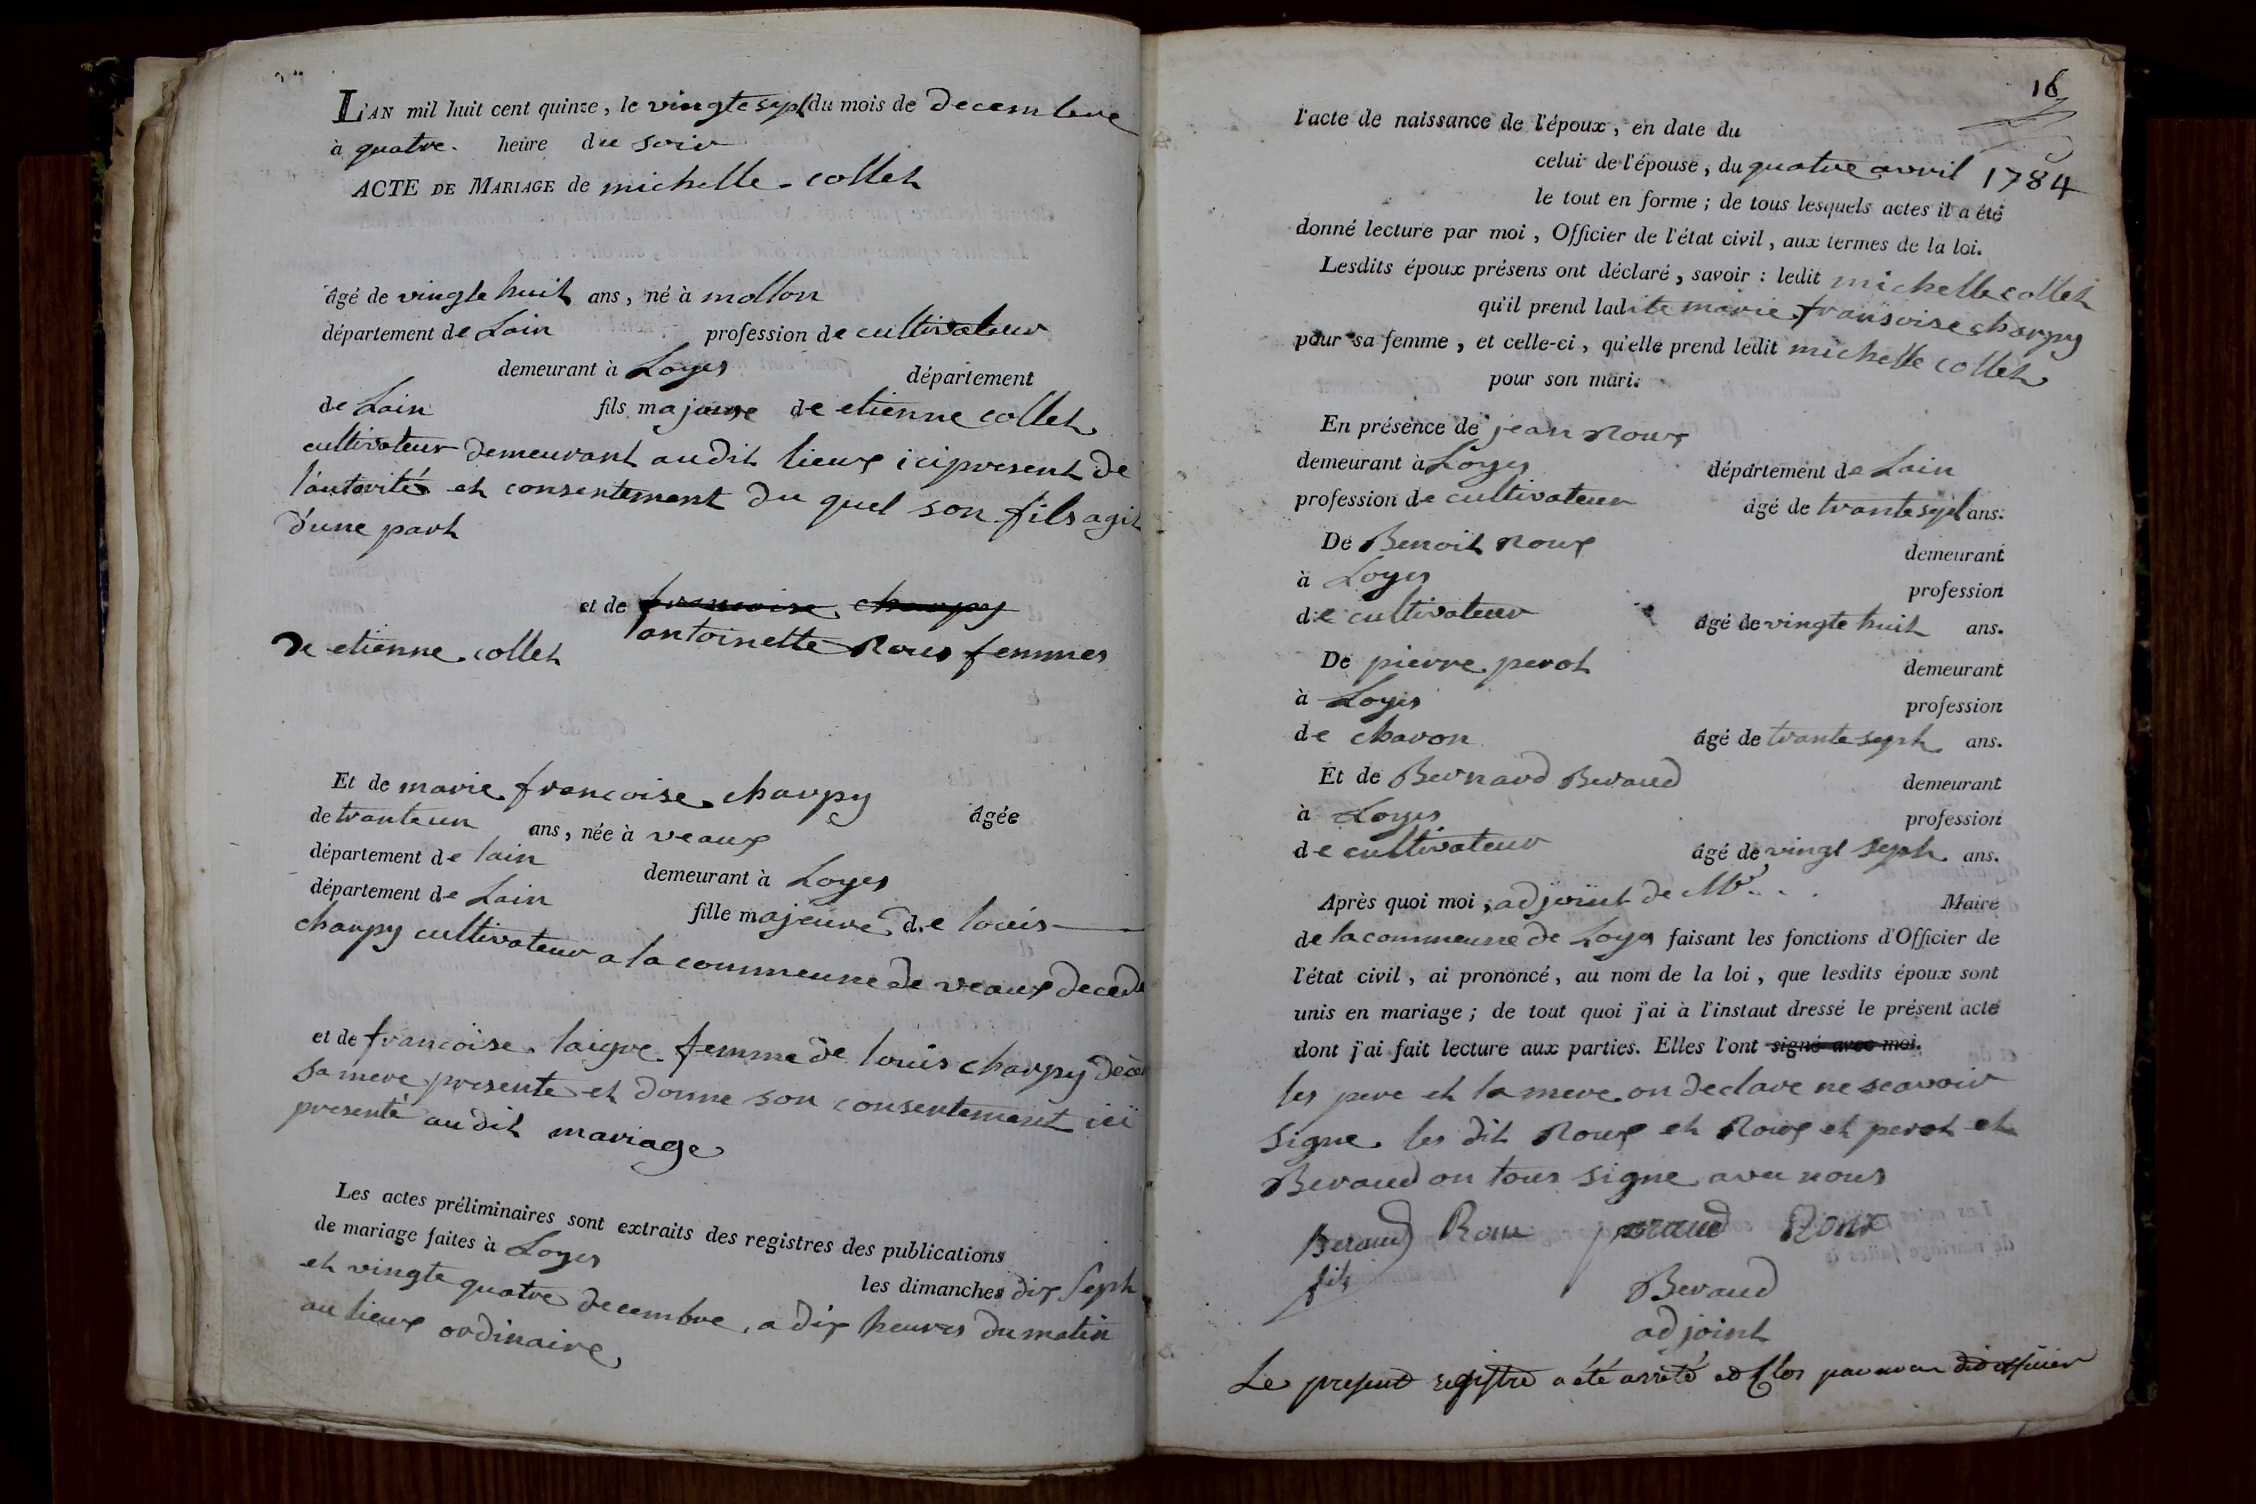 L'AN mil huit cent quinze, le vingte sept du mois de decembre
à quatre heure du soir
ACTE DE MARIAGE de michelle collet
âgé de vingte huit ans, né à mollon
département de Lain profession de cultivateur
demeurant à Loyes département
de Lain fils majeure de etienne collet
cultivateur demeurant audit lieux ici present de
l'autorités et consentement du quel son fils agit
d'une part
et de francoise charpy
antoinette Roux femmes
de etienne collet
Et de marie francoise charpy âgée
de trante un ans, née à veaux
département de lain demeurant à Loyes
département de Lain fille majeure de louis
charpy cultivateur a la commeune de veaux decede
et de francoise laigre femme de louis charpy
sa mere presente et donne son consentement ici
presenté audit mariage
Les actes préliminaires sont extraits des registres des publications
de mariage faites à Loyes les dimanches dix Sept
et vingte quatre decembre, a dix heures du matin
au lieux ordinaire,
16
l'acte de naissance de l'époux, en date du
celui de l'épouse, du quatre avril 1784
le tout en forme ; de tous lesquels actes il a été
donné lecture par moi, Officier de l'état civil, aux termes de la loi.
Lesdits époux présens ont déclaré, savoir : ledit michelle collet
qu'il prend ladite marie fransoise charpy
pour sa femme, et celle-ci, qu'elle prend ledit michelle collet
pour son mari.
En présence de jean Roux
demeurant à Loyes département de Lain
profession de cultivateur âgé de trante sept ans.
De Benoit Roux demeurant
à Loyes profession
de cultivateur âgé de vingte huit ans.
De pierre perot demeurant
à Loyes profession
de charon âgé de trante sept ans.
Et de Bernard Beraud demeurant
à Loyes profession
de cultivateur âgé de vingt sept ans.
Après quoi moi, adjoint de Mr. Maire
de la commeune de Loyes faisant les fonctions d'Officier de
l'état civil, ai prononcé, au nom de la loi, que lesdits époux sont
unis en mariage ; de tout quoi j'ai à l'instaut dressé le présent acte
dont j'ai fait lecture aux parties. Elles l'ont signé avec moi.
les pere et la mere on declare ne scavoir
signe les dit Roux et Roux et perot et
Beraud on tous signe avec nous
Beraud Roux Roux
fils
Beraud
adjoint
Le present registre a été arrêté et Clos par officier